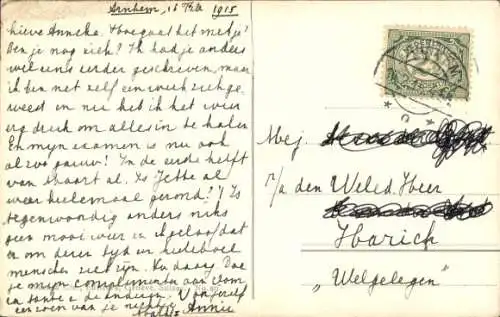 Arnhem, 16 Feb 1915
Lieve Anneke. Hoe gaat het met je?
Ben je nog ziek? Ik had je anders
wel eens eerder geschreven, maar
ik ben net zelf een week ziek ge-
weest en nu heb ik het weer
erg druk om alles in te halen
En mijn examen is nu ook
al zoo gauw! In de eerste helft
van Maart al. Is Jetke al
weer heelemaal gezond? 't Is
tegenwoordig anders niks
geen mooi weer en ik geloof dat
er om dezen tijd een heeleboel
menschen ziek zijn. Nu daag! Doe
je mijn complimenten aan Oom
en tante en de anderen. Van jezelf
een zoen van je nichtje
Annie
Mej.
p/a den Weled. Heer
Harich
"Welgelegen"